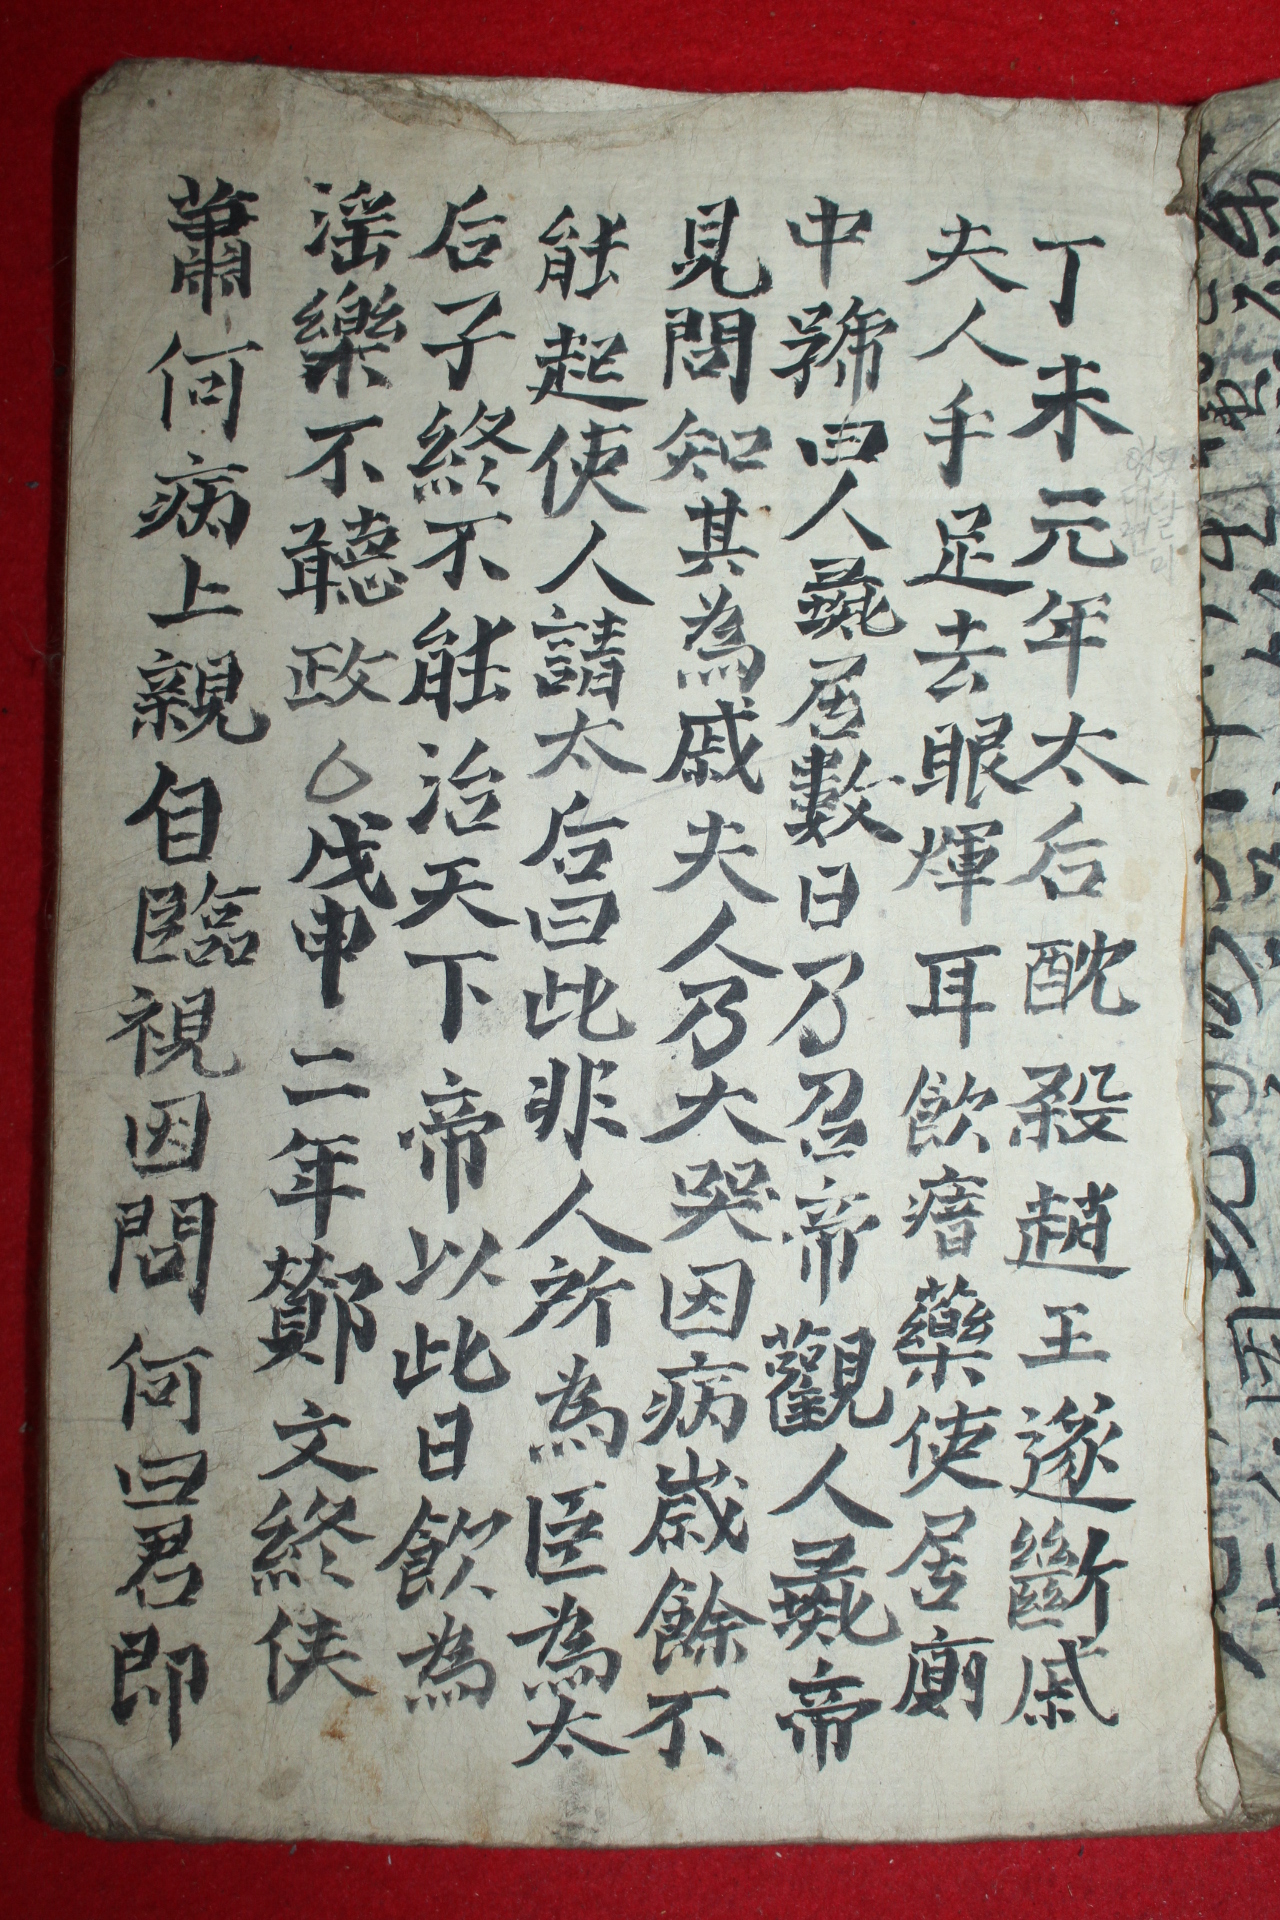 丁未元年太后酖殺趙王遂斷戚
夫人手足去眼煇耳飮瘖藥使居廁
中號曰人彘居數日乃召帝觀人彘帝
見問知其為戚夫人乃大哭因病歲餘不
能起使人請太后曰此非人所為臣為太
后子終不能治天下帝以此日飮為
淫樂不聽政〇戊申二年鄼文終侯
蕭何病上親自臨視因問何曰君即